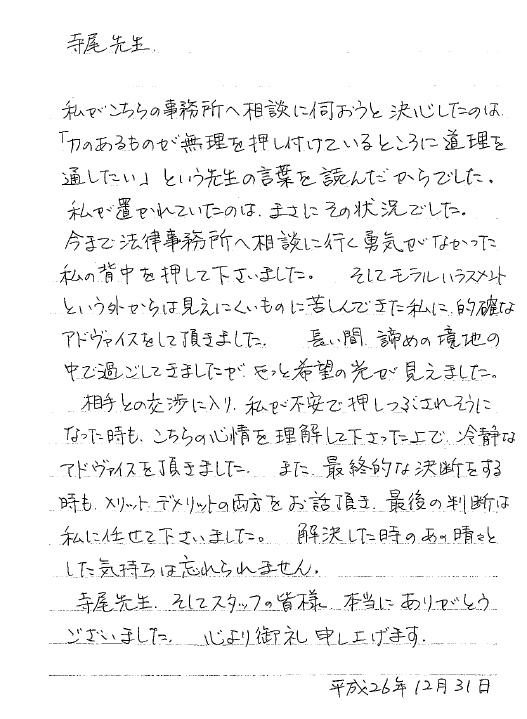 寺尾先生.
私がこちらの事務所へ相談に伺おうと決心したのは、
「力のあるものが無理を押し付けているところに道理を
通したい」という先生の言葉を読んだからでした。
私が置かれていたのは、まさにその状況でした。
今まで法律事務所へ相談に行く勇気がなかった
私の背中を押して下さいました。 そしてモラルハラスメント
という外からは見えにくいものに苦しんできた私に、的確な
アドヴァイスをして頂きました. 長い間、諦めの境地の
中で過ごしてきましたが、やっと希望の光が見えました。
相手との交渉に入り、私が不安で押しつぶされそうに
なった時も、こちらの心情を理解して下さった上で、冷静な
アドヴァイスを頂きました. また、最終的な決断をする
時も、メリット、デメリットの両方をお話頂き、最後の判断は
私に任せて下さいました。 解決した時のあの晴々と
した気持ちは忘れられません.
寺尾先生、そしてスタッフの皆様、本当にありがとう
ございました. 心より御礼申し上げます.
平成26年12月31日